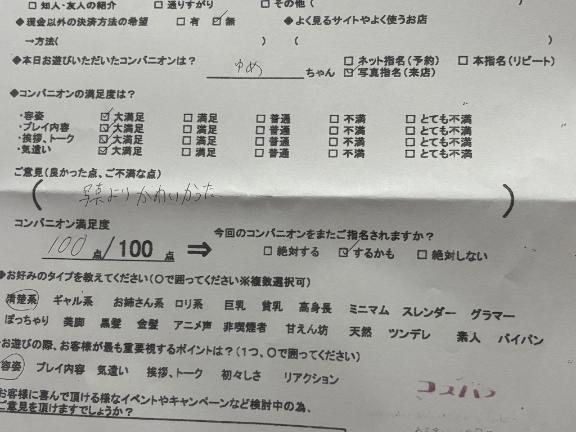 □ 知人・友人の紹介 □ 通りすがり □ その他(
◆現金以外の決済方法の希望 □ 有 ☑ 無 ◆よく見るサイトやよく使うお店
→方法( ) ( )
◆本日お遊びいただいたコンパニオンは? ゆめ ちゃん □ ネット指名(予約) □ 本指名(リピート)
☑ 写真指名(来店)
◆コンパニオンの満足度は?
・容姿 ☑ 大満足 □ 満足 □ 普通 □ 不満 □ とても不満
・プレイ内容 ☑ 大満足 □ 満足 □ 普通 □ 不満 □ とても不満
・挨拶、トーク ☑ 大満足 □ 満足 □ 普通 □ 不満 □ とても不満
・気遣い ☑ 大満足 □ 満足 □ 普通 □ 不満 □ とても不満
ご意見(良かった点、ご不満な点)
(写真よりかわいかった)
コンパニオン満足度
今回のコンパニオンをまたご指名されますか?
100点/100点 ⇒ □ 絶対する ☑ するかも □ 絶対しない
◆お好みのタイプを教えてください(○で囲ってください※複数選択可)
清楚系 ギャル系 お姉さん系 ロリ系 巨乳 貧乳 高身長 ミニマム スレンダー グラマー
ぽっちゃり 美脚 黒髪 金髪 アニメ声 非喫煙者 甘えん坊 天然 ツンデレ 素人 パイパン
お遊びの際、お客様が最も重要視するポイントは?(1つ、○で囲ってください)
容姿 プレイ内容 気遣い 挨拶、トーク 初々しさ リアクション
お客様に喜んで頂ける様なイベントやキャンペーンなど検討中の為、
ご意見を頂けますでしょうか?